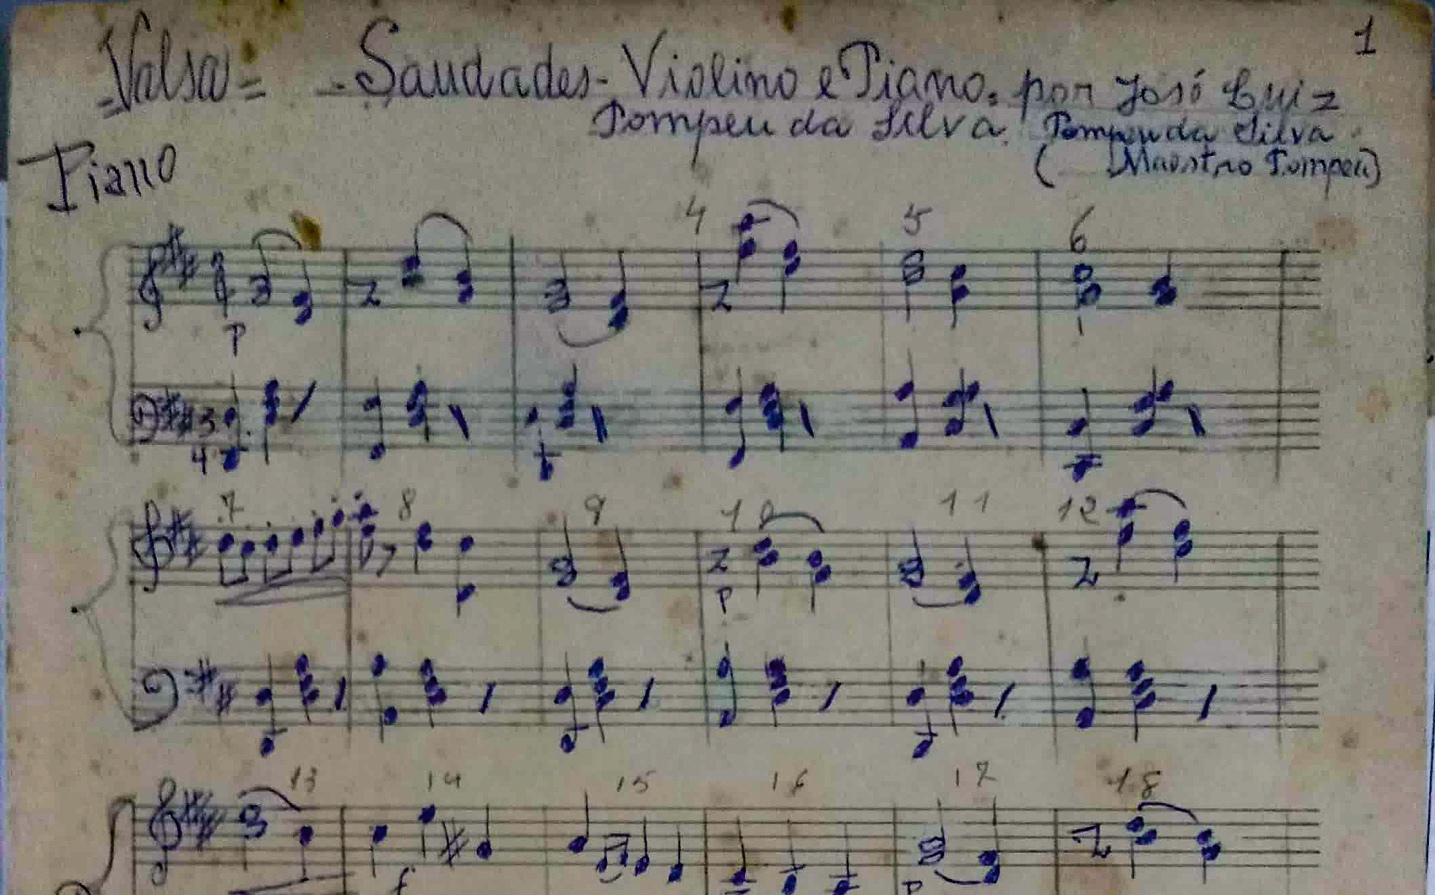 1
=Valsa= -Saudades- Violino e Piano. por José Luiz
Pompeu da Silva. Pompeu da Silva.
(Maestro Pompeu)
Piano
4 5 6
p
3
4
7 8 9 10 11 12
p
13 14 15 16 17 18
f p